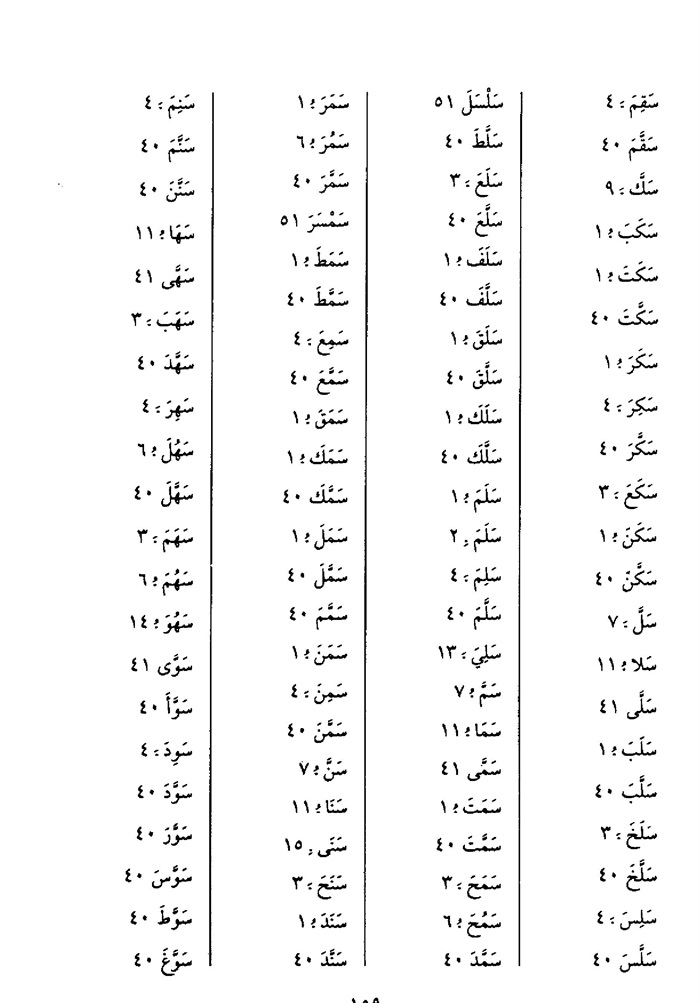 سَقِمَ ـَ ٤
سَقَّمَ ٤٠
سَكَّ ـَ ٩
سَكَبَ ـُ ١
سَكَتَ ـُ ١
سَكَّتَ ٤٠
سَكَرَ ـُ ١
سَكِرَ ـَ ٤
سَكَّرَ ٤٠
سَكَعَ ـَ ٣
سَكَنَ ـُ ١
سَكَّنَ ٤٠
سَلَّ ـُ ٧
سَلا ـُ ١١
سَلَّى ٤١
سَلَبَ ـُ ١
سَلَّبَ ٤٠
سَلَخَ ـَ ٣
سَلَّخَ ٤٠
سَلِسَ ـَ ٤
سَلَّسَ ٤٠
سَلْسَلَ ٥١
سَلَّطَ ٤٠
سَلَعَ ـَ ٣
سَلَّعَ ٤٠
سَلَفَ ـُ ١
سَلَّفَ ٤٠
سَلَقَ ـُ ١
سَلَّقَ ٤٠
سَلَكَ ـُ ١
سَلَّكَ ٤٠
سَلَمَ ـُ ١
سَلَمَ ـِ ٢
سَلِمَ ـَ ٤
سَلَّمَ ٤٠
سَلِيَ ـَ ١٣
سَمَّ ـُ ٧
سَمَا ـُ ١١
سَمَّى ٤١
سَمَتَ ـُ ١
سَمَّتَ ٤٠
سَمَحَ ـَ ٣
سَمُحَ ـُ ٦
سَمَّدَ ٤٠
سَمَرَ ـُ ١
سَمُرَ ـُ ٦
سَمَّرَ ٤٠
سَمْسَرَ ٥١
سَمَطَ ـُ ١
سَمَّطَ ٤٠
سَمِعَ ـَ ٤
سَمَّعَ ٤٠
سَمَقَ ـُ ١
سَمَكَ ـُ ١
سَمَّكَ ٤٠
سَمَلَ ـُ ١
سَمَّلَ ٤٠
سَمَّمَ ٤٠
سَمَنَ ـُ ١
سَمِنَ ـَ ٤
سَمَّنَ ٤٠
سَنَّ ـُ ٧
سَنَا ـُ ١١
سَنَى ـِ ١٥
سَنَحَ ـَ ٣
سَنَدَ ـُ ١
سَنَّدَ ٤٠
سَنِمَ ـَ ٤
سَنَّمَ ٤٠
سَنَّنَ ٤٠
سَهَا ـُ ١١
سَهَّى ٤١
سَهَبَ ـَ ٣
سَهَّدَ ٤٠
سَهِرَ ـَ ٤
سَهُلَ ـُ ٦
سَهَّلَ ٤٠
سَهَمَ ـَ ٣
سَهُمَ ـُ ٦
سَهُوَ ـُ ١٤
سَوَّى ٤١
سَوَّأَ ٤٠
سَوِدَ ـَ ٤
سَوَّدَ ٤٠
سَوَّرَ ٤٠
سَوَّسَ ٤٠
سَوَّطَ ٤٠
سَوَّغَ ٤٠